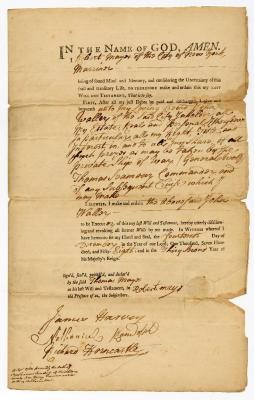 IN THE NAME OF GOD, AMEN.
Robert Mayes of the City of New York
Marriner
being of sound Mind and Memory, and considering the Uncertainty of this
frail and transitory Life, DO THEREFORE make and ordain this my LAST
WILL AND TESTAMENT, That is to say,
FIRST, After all my just Debts be paid and discharged,
unto my Loving friend John
Walter of the said City
my Estate Real and Personal
in particular all my Right Title and
Interest in, and to all my Share, of all
Such Prizes as may be Taken by the
private Ship of War, General Wolf
Thomas Seamour Commander and
of any Subsequent Cruise which I
may Make
LIKEWISE, I make and ordain the Abovesaid John
Walter
to be Execut of this my last Will and Testament, hereby utterly disallow-
ing and revoking all former Wills by me made. IN WITNESS whereof I
have hereunto set my Hand and Seal, the Fourteenth Day of
December in the Year of our Lord, One Thousand, Seven Hun-
dred, and Fifty Eight and in the Thirty Second Year of
His Majesty's Reign.
Sign'd, seal'd, publish'd, and declar'd
by the said Thomas Mayes
as his last Will and Testament, in
the Presence of us, the Subscribers.
Robert mayes
James Harvey
Nathaniel Randolph
Richard Horncastle